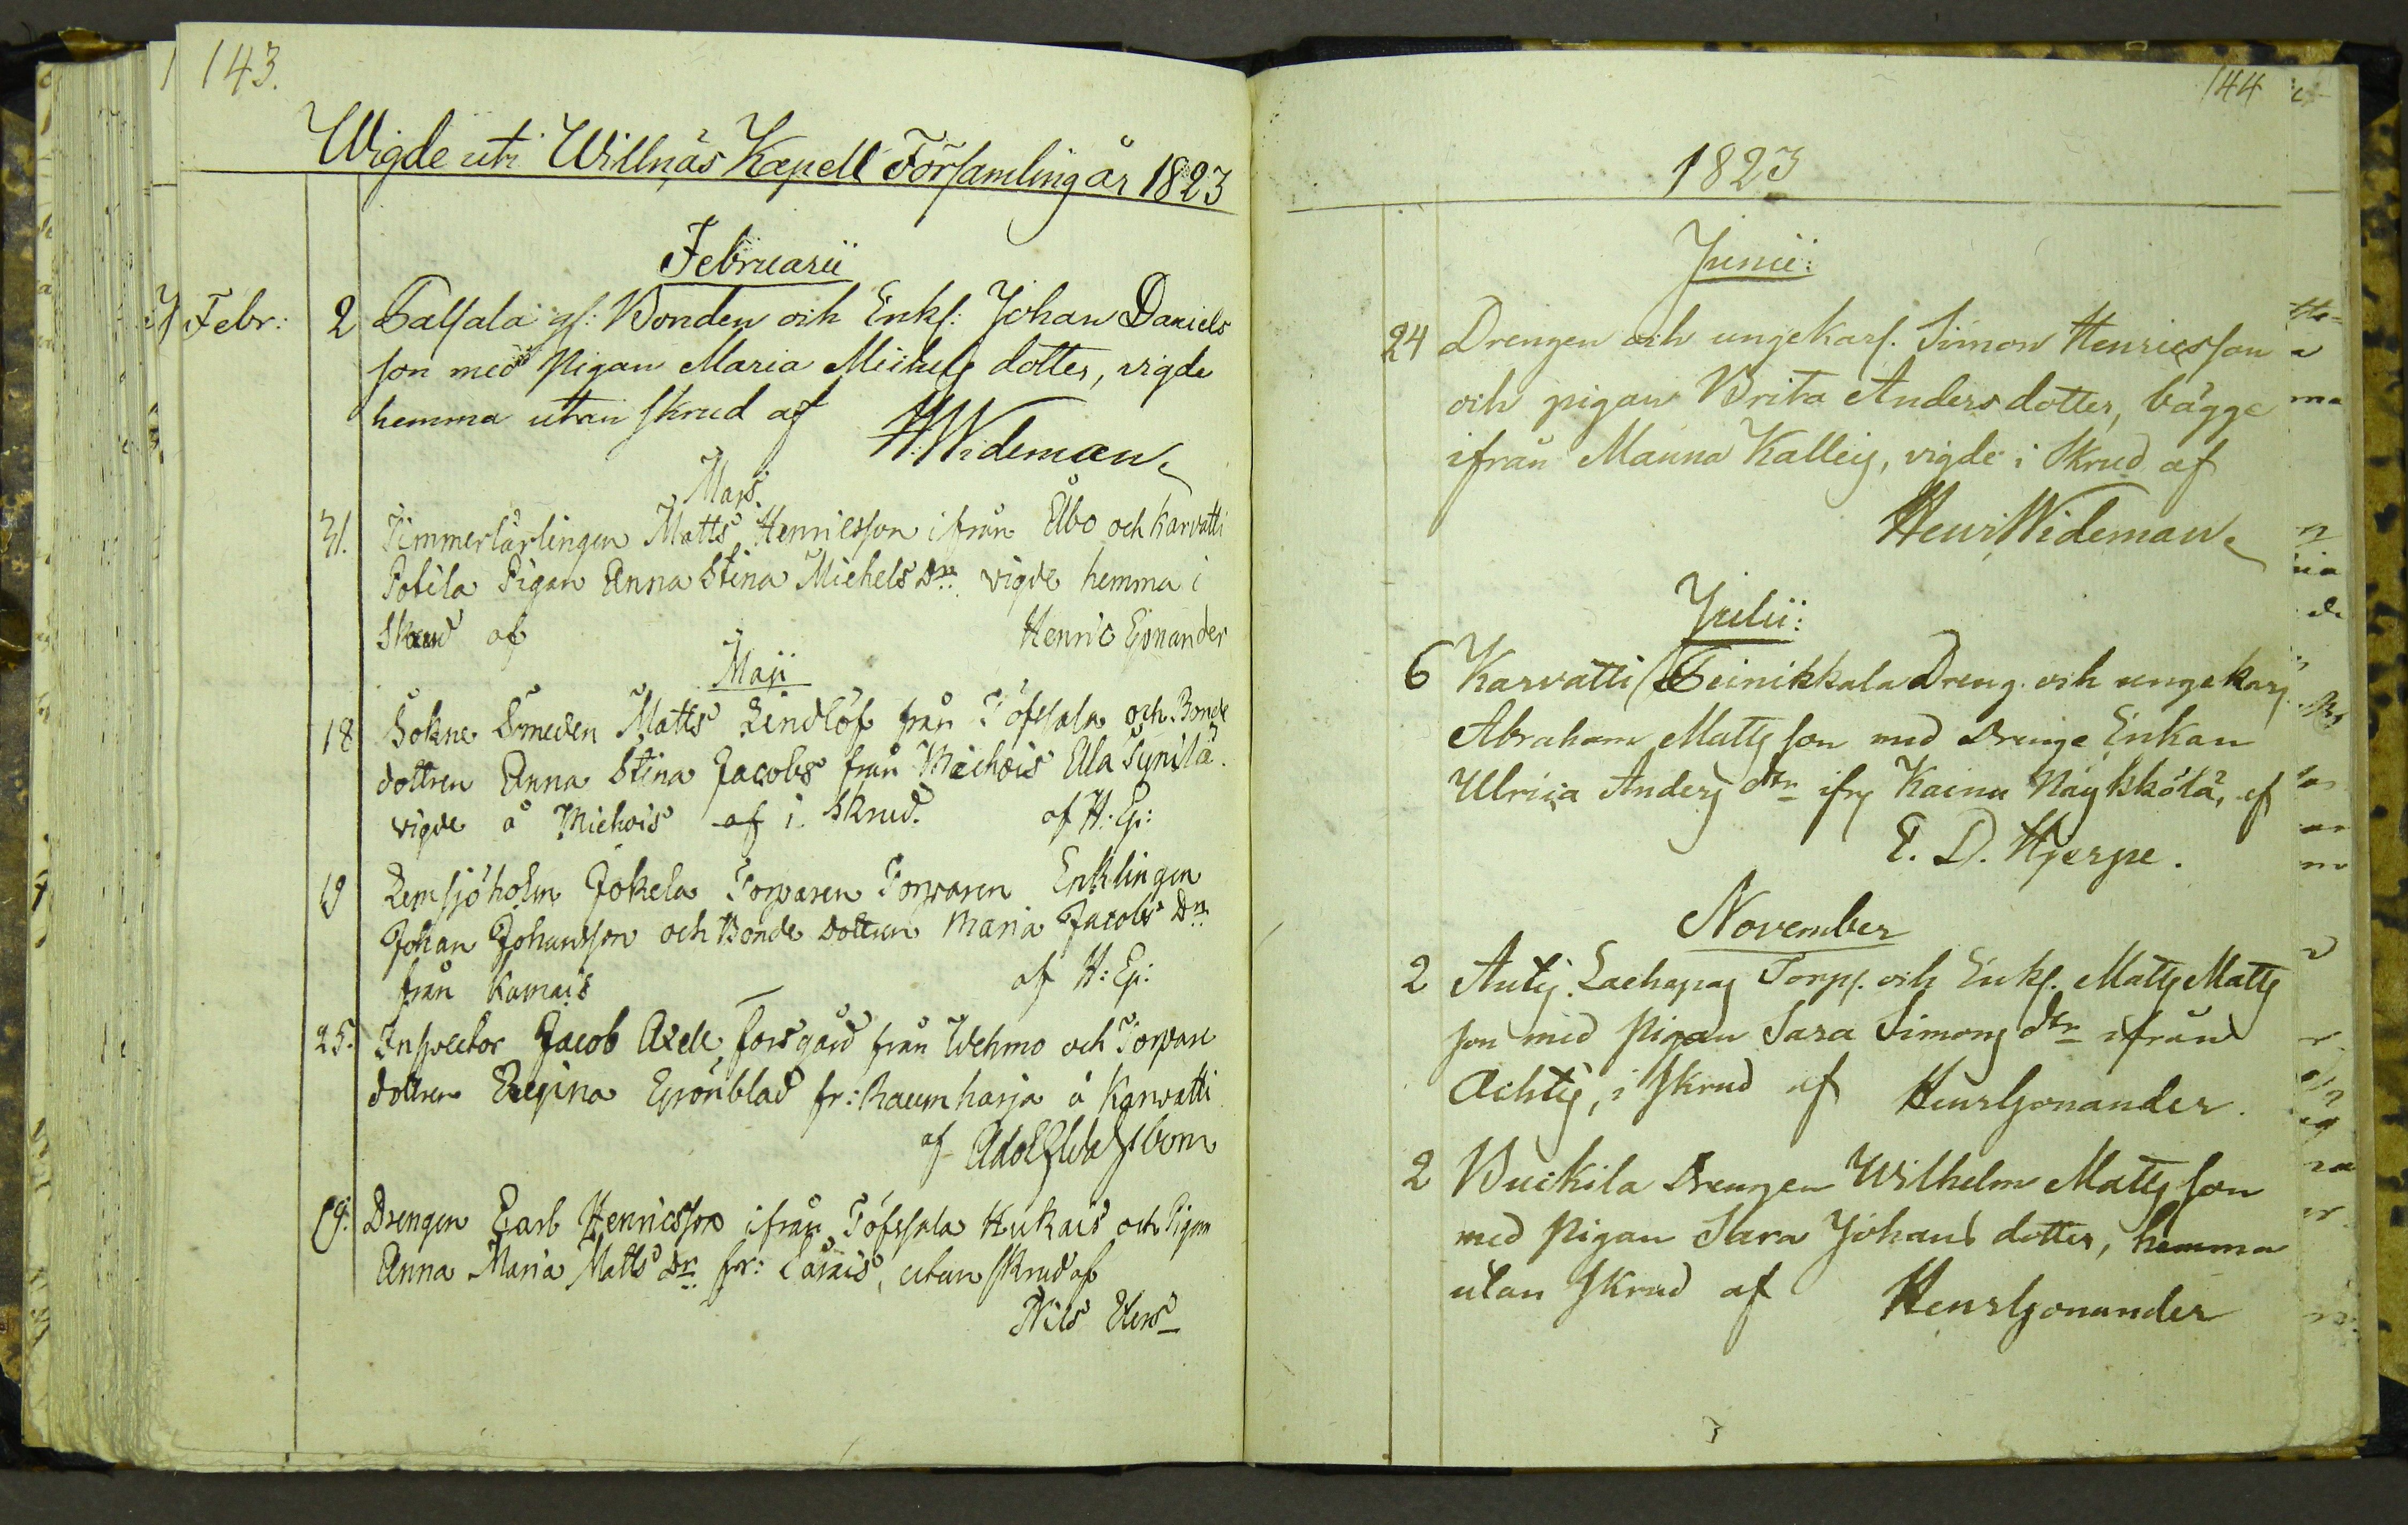 143.
Wigde uti Willnäs Kapell Församling år 1823
Februarii
Febr: 2 Salsala gl: Bonden och Enkl: Johan Daniels
son med Pigan Maria Michels dotter, vigde
hemma utan skrud af H. Wideman
Mars
31. Timmerlärlingen Matts Henricsson ifrån Åbo och Karvatti
Potila Pigan Anna Stina Michels Dr. vigde hemma i
Skrud af Henric Gonander
Maji
18 Sokne Smeden Matts Lindlöf från Töfsala och Bonde
dottren Anna Stina Jacobs från Michois Ella Sunila
vigde å Michois af i Skrud. af H: G:
19 Lemsjöholm Jokela Torparen Torparen Enklingen
Johan Johansson och Bonde Dottren Maria Jacobs Dr
från Kamais af H: G:
25. Inspector Jacob Axell Forsgård från Wehmo och Torpare
dottren Regina Grönblad fr: Raumharja å Karvatti
af
19. Drengen Carl Henricsson ifrån Töfsala Hukais och Pigan
Anna Maria Matts dr fr: utan skrud af
Nils
144
1823
Junii:
24 Drengen och ungekarl. Simon Henricsson
och pigan Brita Anders dotter, bägge
ifrån Manna Kalleis, vigde i Skrud af
Henr: Wideman
Julii:
6 Karvatti Teinikkala Dreng och ungekarl
Abraham Matts son med Drenge Enkan
Ulrica Anders dtr ifr Kainu af
E. D. Hjerpe.
November
2 Antis Torp. och Enkl. Matts Matts
son med Pigan Sara Simons dtr ifrån
Achtis, i Skrud af Henr Gonander.
2 Buckila Drengen Wilhelm Matts son
med Pigan Sara Johans dotter, hemma
utan Skrud af Henr Gonander